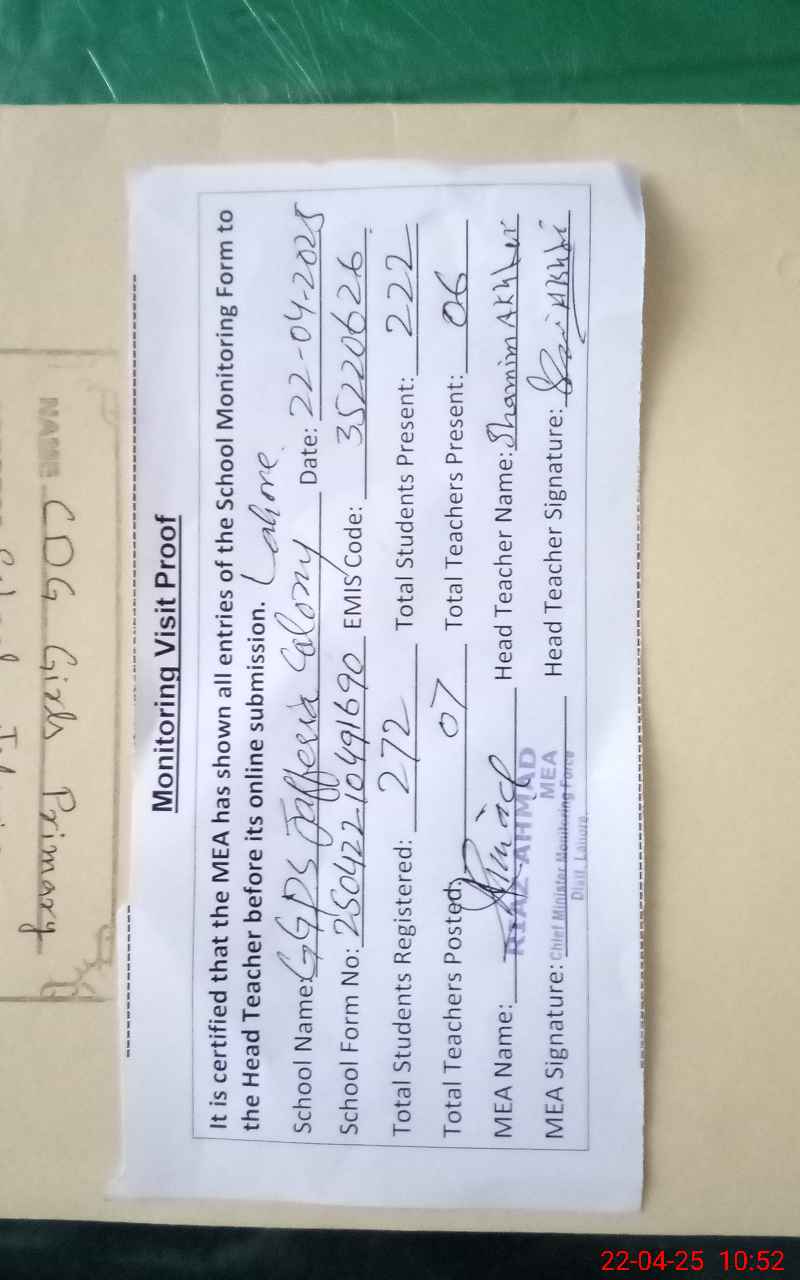 NAME GOJ Girls Primary
Monitoring Visit Proof
It is certified that the MEA has shown all entries of the School Monitoring Form to
the Head Teacher before its online submission.
School Name: GGPS Jafferia Colony Lahore. Date: 22-04-2025
School Form No: 25042210491690 EMIS Code: 35220626
Total Students Registered: 272 Total Students Present: 222
Total Teachers Posted: 07 Total Teachers Present: 06
MEA Name: Head Teacher Name: Shamim Akhtar
RIAZ AHMAD
MEA
MEA Signature: Head Teacher Signature:
Chief Minister Monitoring Force
Distt. Lahore
22-04-25 10:52